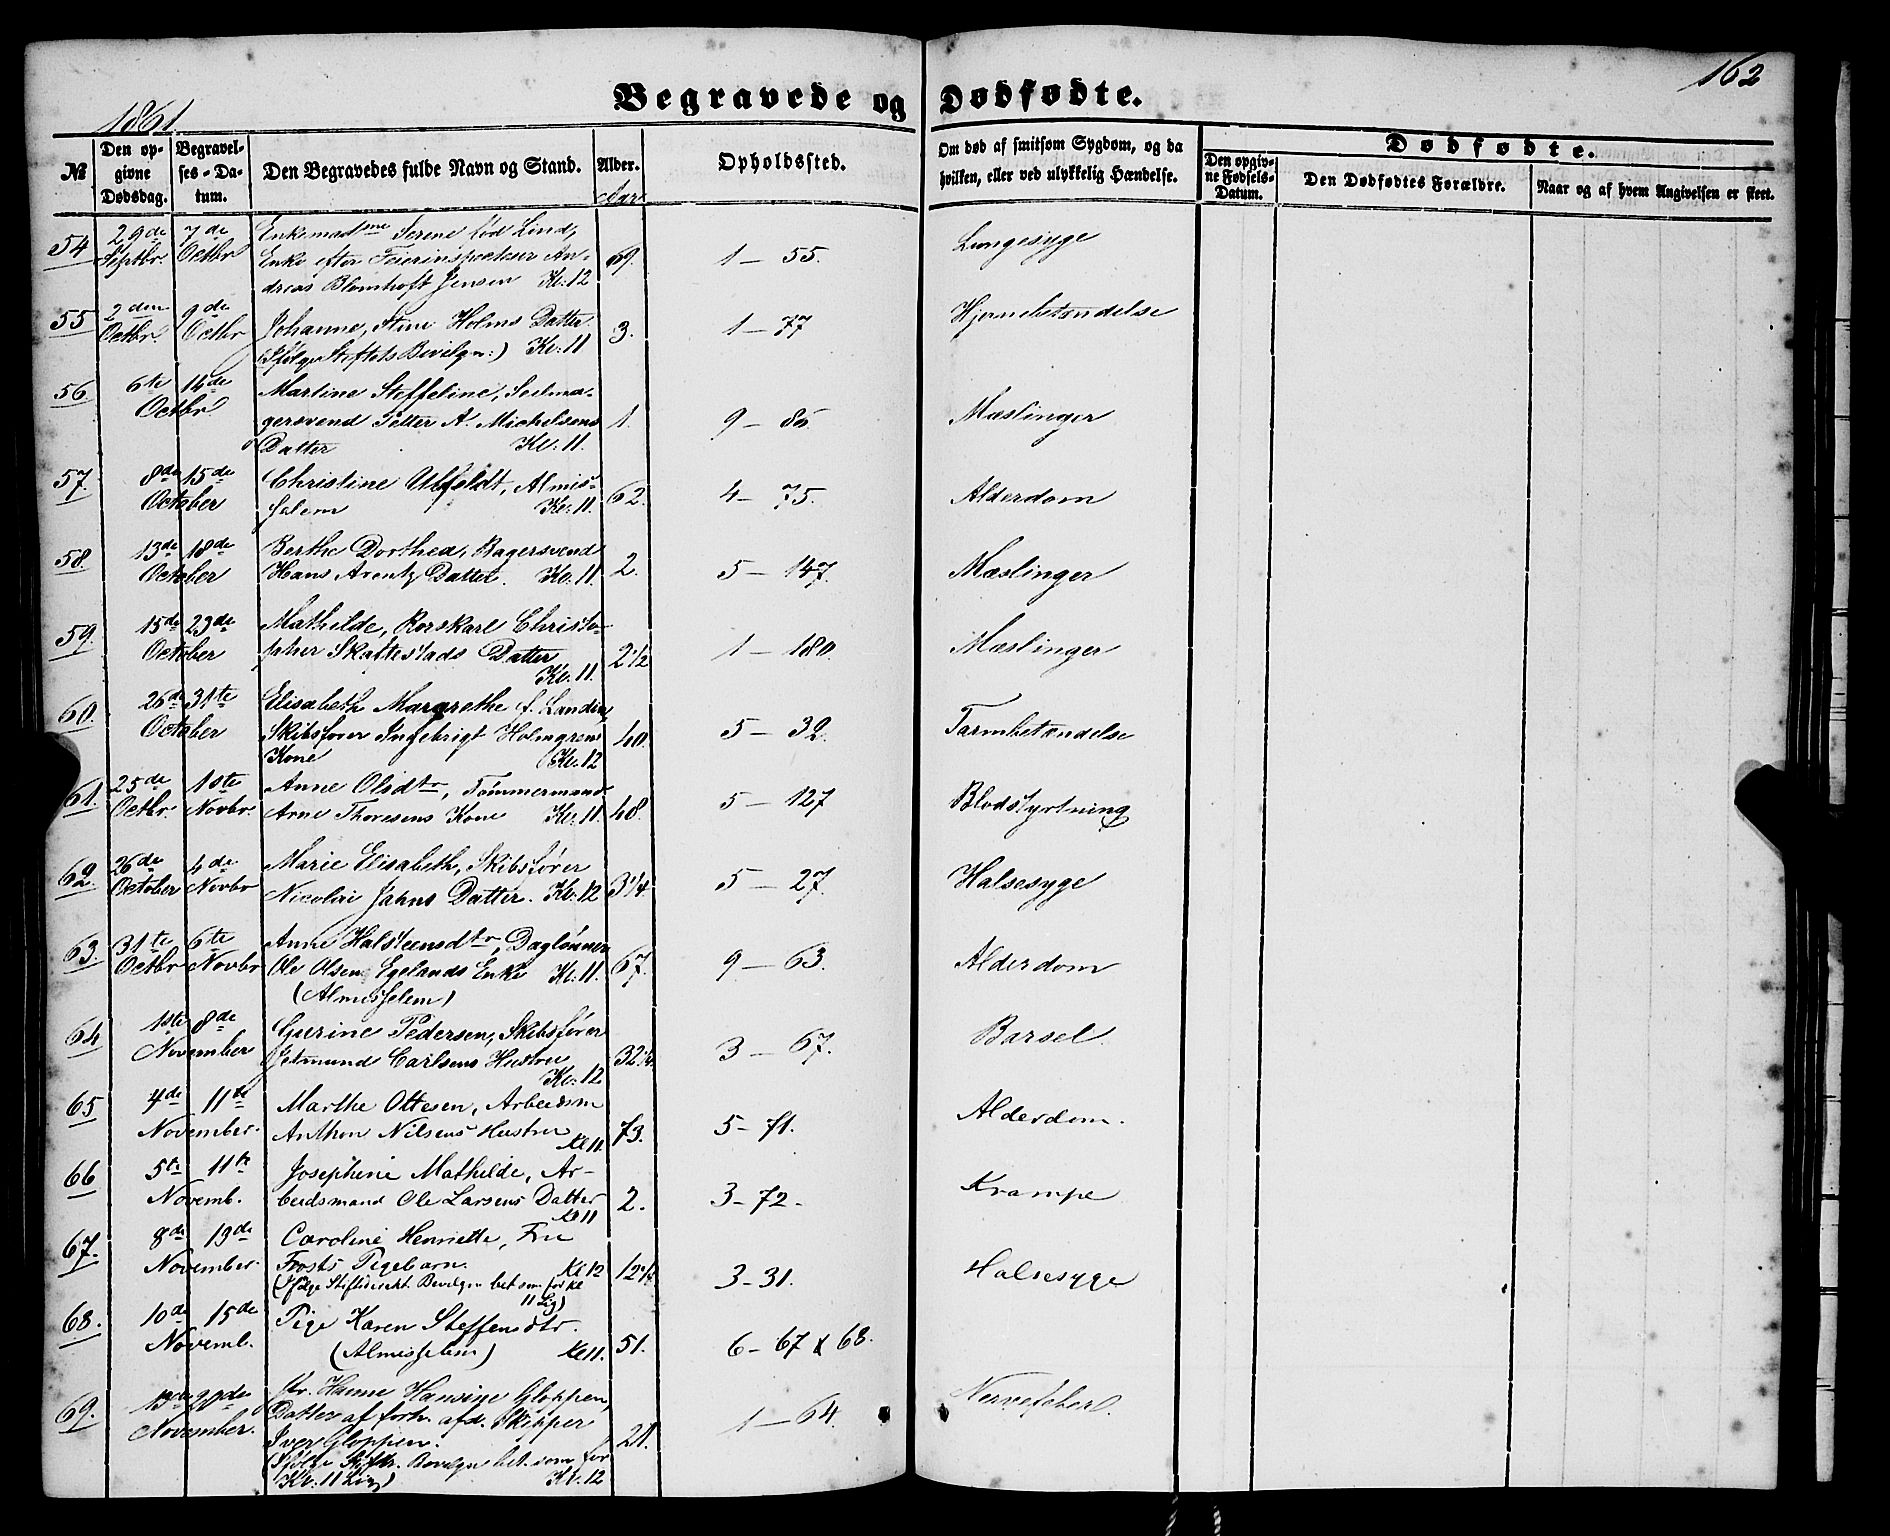 162
Begravede og Dødfødte.
1861
№
Den opgivne Dødsdag.
Begravelses-Datum.
Den Begravedes fulde Navn og Stand.
Alder.
Aar
Opholdssted.
Om død af smitsom Sygdom, og da hvilken, eller ved ulykkelig Hændelse.
Dødfødte.
Den opgivne Fødsels-Datum.
Den Dødfødtes Forældre.
Naar og af hvem Angivelsen er skeet.
54 29de Septbr. 7de Octbr Enkemadme Serene fød Lind,
Enke efter Feierinspecteur An-
dreas Blomhoft Jensen Kl: 12 69. 1 – 55. Lungesyge
55 2den Octbr. 9de Octbr Johanne, Stine Holms Datter
(Ifølge Stiftets Bevilgn:) Kl: 11 3. 1 – 77 Hjernebetændelse
56 6te 14de Octbr Martine Steffeline, Seilma-
gersvend Petter A. Michelsens
Datter Kl: 11. 1. 9 – 85 Mæslinger
57. 8de 15de October Christine Ulfeldt, Almis-
selem Kl: 11. 62. 4 – 75. Alderdom
58. 13de 18de October Berthe Dorthea, Bagersvend
Hans Arentz Datter. Kl. 11. 2. 5 – 147. Mæslinger
59. 15de 23de October Mathilde, Rorskarl Christo-
pher Skattestads Datter
Kl. 11. 2 1/2 1 – 180. Mæslinger
60. 26de 31te October Elisabeth Margrethe f. Landin,
Skibsfører Ingebrigt Holmgrens
Kone Kl. 12 40. 5 – 32. Tarmbetændelse
61. 25de Octbr. 1ste Novbr. Anne Olsdtr, Tømmermand
Arne Thoresens Kone Kl: 11. 48. 5 – 127 Blodstyrtning
62. 26de October 4de Novbr Marie Elisabeth, Skibsfører
Nicolai Jahns Datter. Kl: 12 3 1/4. 5 – 27. Halsesyge
63. 31te Octbr 6te Novbr Anne Halsteensdtr, Daglønner
Ole Olsen Egelands Enke Kl. 11. 67. 9 – 63. Alderdom
(Almisselem)
64 1ste 8de November Gurine Pedersen, Skibsfører
Jetmund Carlsens Hustru
Kl: 12 32 3 – 67. Barsel
65 4de 11te November. Marthe Ottesen, Arbeidsm
Anthon Nilsens Hustru
Kl 11. 73. 5 – 71. Alderdom.
66 5te 11te Novemb. Josephine Mathilde, Ar-
beidsmand Ole Larsens Datter
Kl 11 2. 3 – 72. Krampe
67. 8de 13de November. Caroline Henriette, Fru
Frosts Pigebarn. Kl 12 12 3 – 31. Halsesyge
(Ifølge Stiftsdirekt. Bevilgn bet som for Kl
11 Lig)
68. 10de 15de Novemb. Pige Karen Steffensdtr.
(Almisselem) Kl 11. 51. 6 – 67 & 68.
69. 20de November. Hanne Hansine Gloppen,
Datter af forhv. afd. Skipper
Iver Gloppen. 21. 1 – 64. Nervefeber.
(Ifølge Stiftsr. Bevilgn bet. som for
Kl: 11 Lig) Kl. 12